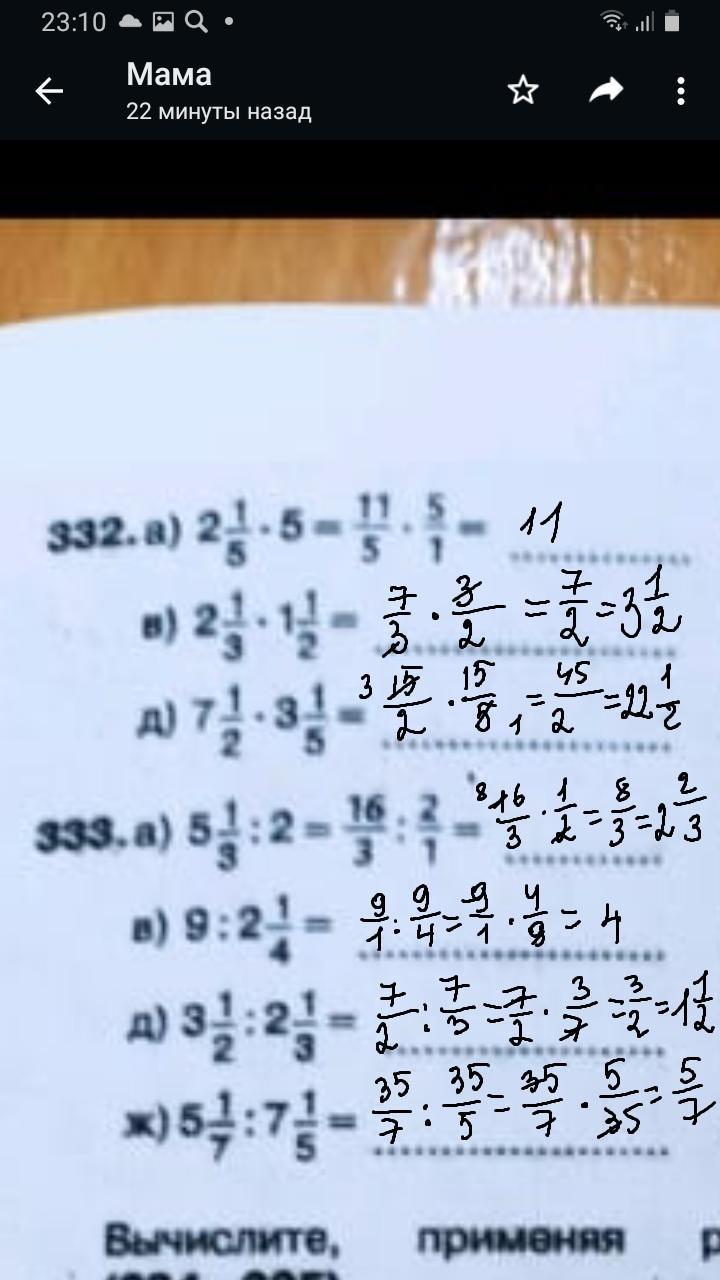 23:10
Мама
22 минуты назад
332. а) 2 1/5 · 5 = 11/5 · 5/1 = 11
в) 2 1/3 · 1 1/2 = 7/3 · 3/2 = 7/2 = 3 1/2
д) 7 1/2 · 3 1/5 = 3 15/2 · 15/5 1 = 45/2 = 22 1/2
333. а) 5 1/3 : 2 = 16/3 : 2/1 = 8 16/3 · 1/2 = 8/3 = 2 2/3
в) 9 : 2 1/4 = 9/1 : 9/4 = 9/1 · 4/9 = 4
д) 3 1/2 : 2 1/3 = 7/2 : 7/3 = 7/2 · 3/7 = 3/2 = 1 1/2
ж) 5 1/7 : 7 1/5 = 35/7 : 35/5 = 35/7 · 5/35 = 5/7
Вычислите, применяя р